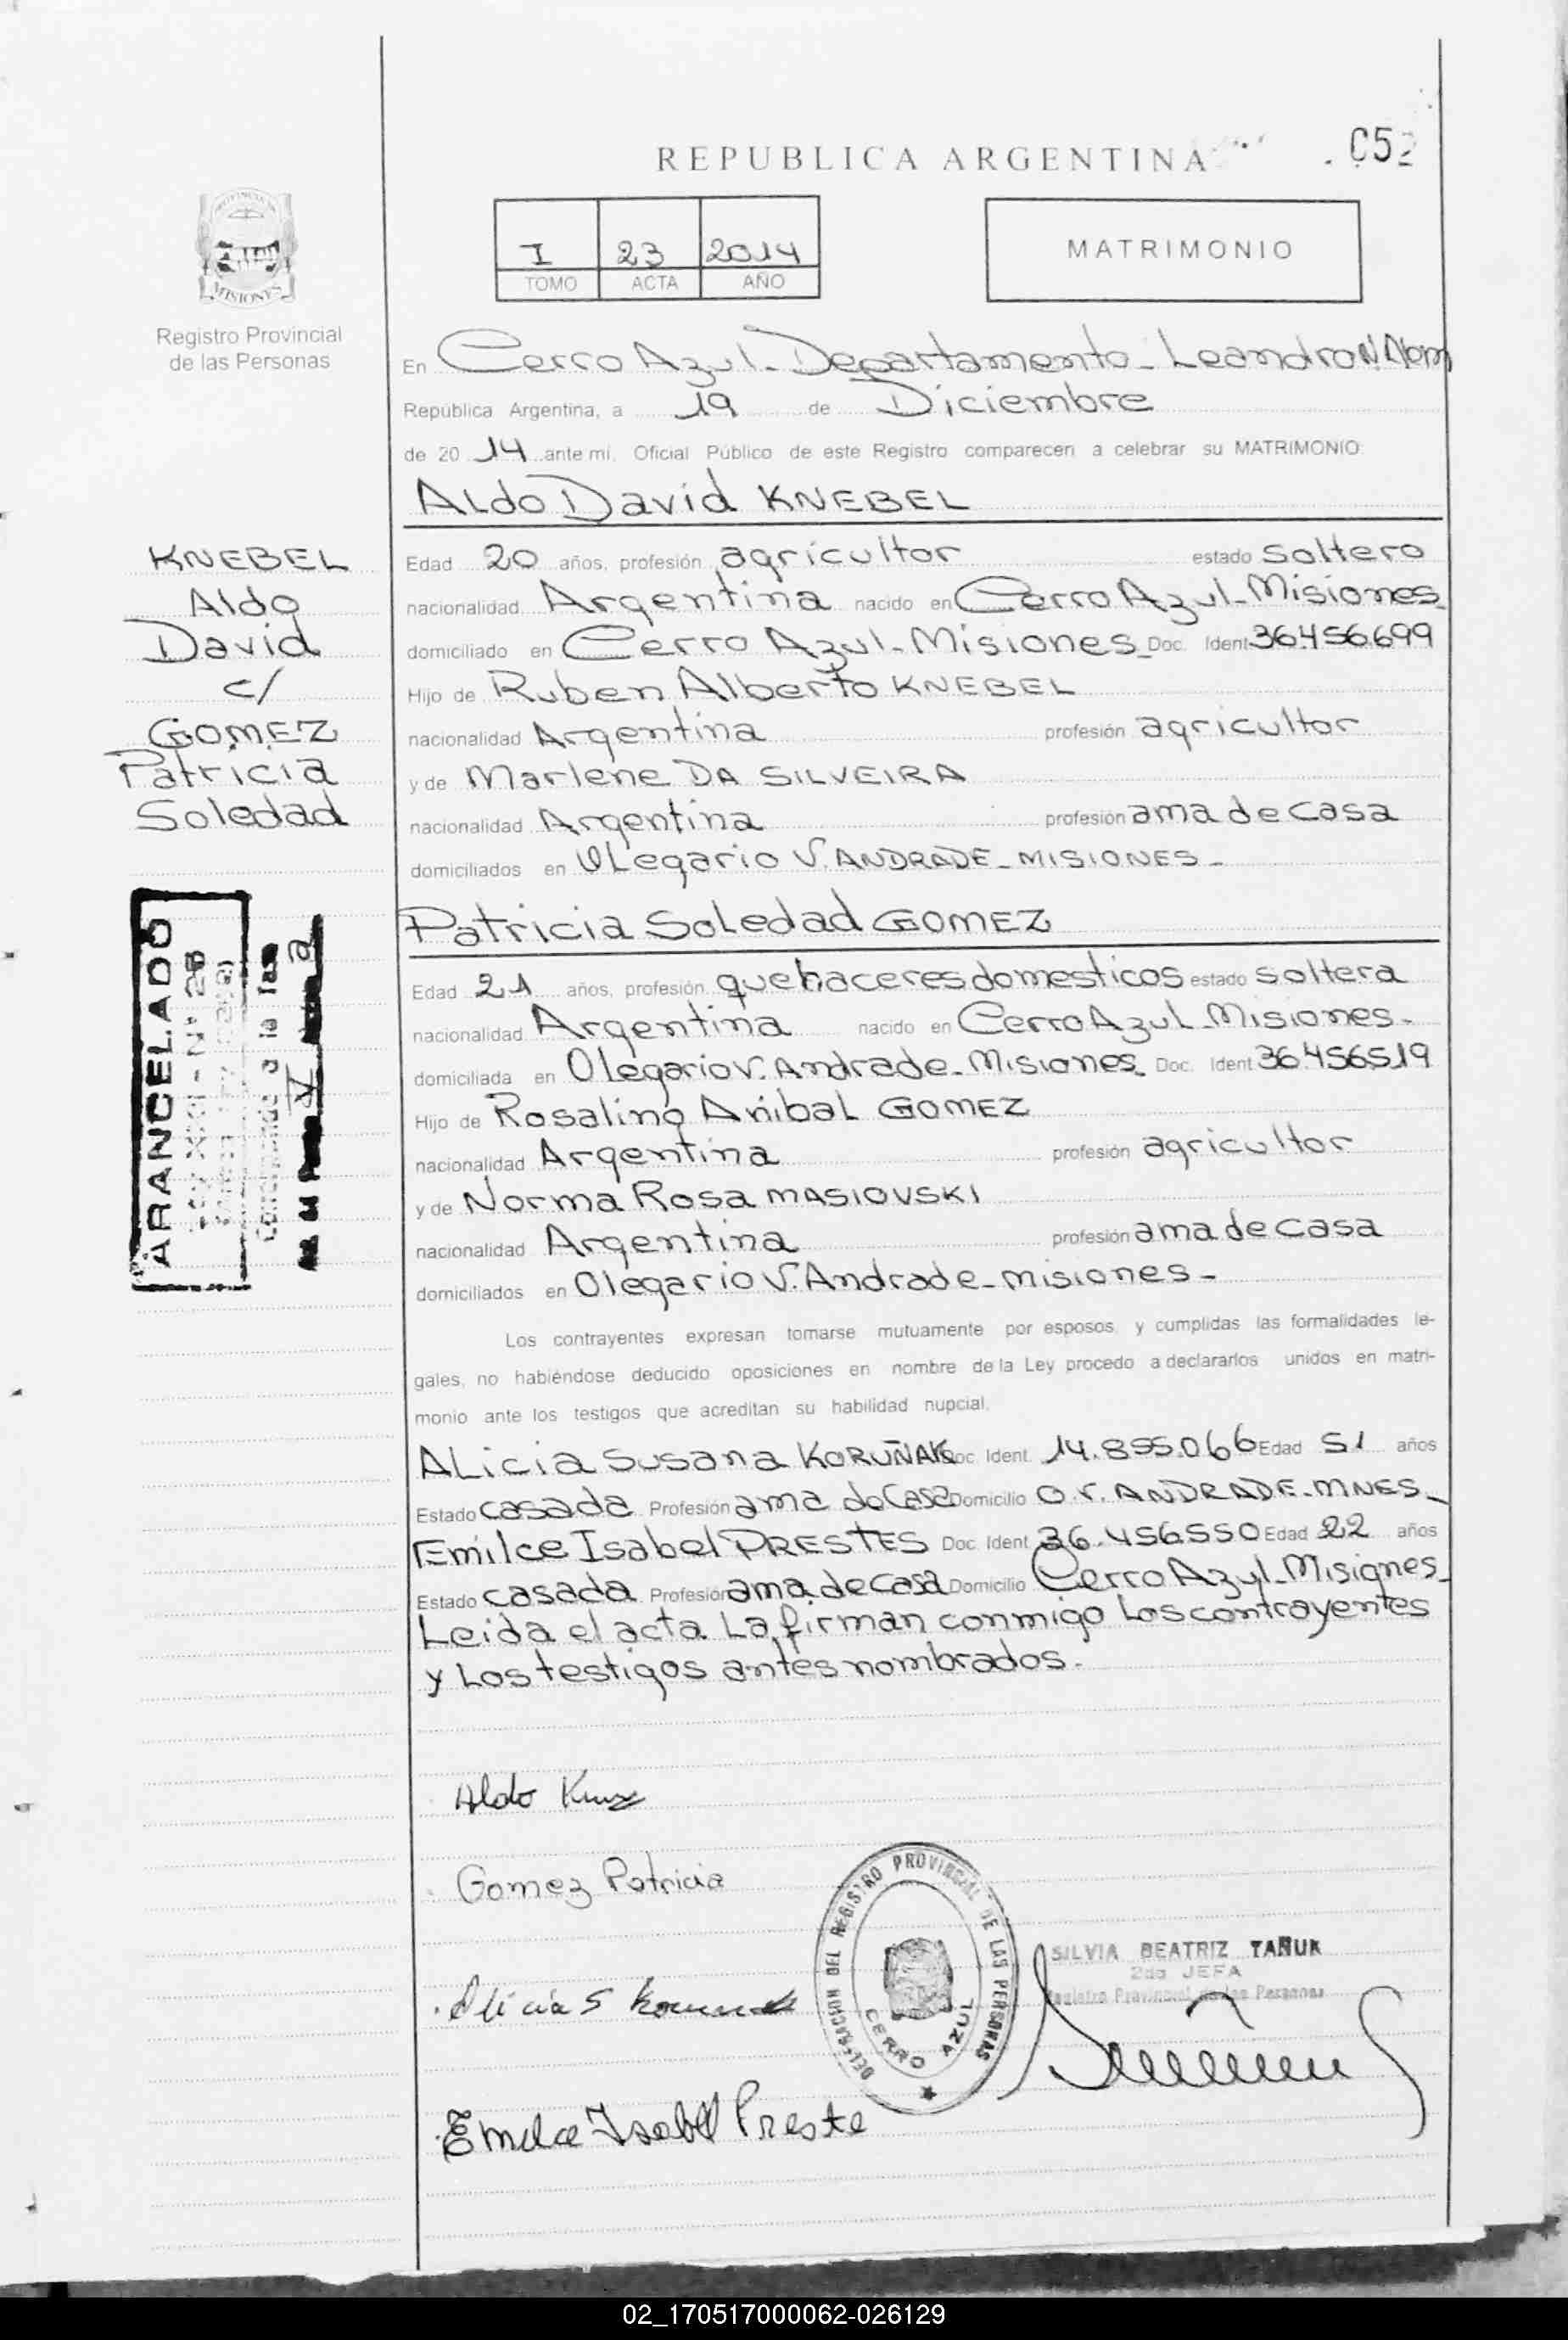 REPUBLICA ARGENTINA
052
I 23 2014
TOMO ACTA AÑO
MATRIMONIO
MISIONES
Registro Provincial
de las Personas
En Cerro Azul - Departamento - Leandro N. Alem
República Argentina, a 19 de Diciembre
de 20 14 ante mi, Oficial Público de este Registro comparecen a celebrar su MATRIMONIO:
Aldo David KNEBEL
KNEBEL
Aldo
David
c/
GOMEZ
Patricia
Soledad
Edad 20 años, profesión agricultor estado soltero
nacionalidad Argentina nacido en Cerro Azul - Misiones
domiciliado en Cerro Azul - Misiones - Doc. Ident. 36.456.699
Hijo de Ruben Alberto KNEBEL
nacionalidad Argentina profesión agricultor
y de Marlene DA SILVEIRA
nacionalidad Argentina profesión ama de casa
domiciliados en OLegario V. ANDRADE - MISIONES -
Patricia Soledad GOMEZ
Edad 21 años, profesión quehaceres domesticos estado soltera
nacionalidad Argentina nacido en Cerro Azul - Misiones -
domiciliada en Olegario V. Andrade - Misiones - Doc. Ident. 36.456519
Hijo de Rosalino Anibal GOMEZ
nacionalidad Argentina profesión agricultor
y de Norma Rosa MASIOVSKI
nacionalidad Argentina profesión ama de casa
domiciliados en Olegario V. Andrade - misiones -
ARANCELADO
a la
Los contrayentes expresan tomarse mutuamente por esposos, y cumplidas las formalidades le-
gales, no habiéndose deducido oposiciones en nombre de la Ley procedo a declararlos unidos en matri-
monio ante los testigos que acreditan su habilidad nupcial.
ALicia Susana KORUÑAK Doc. Ident. 14.895.066 Edad 51 años
Estado casada Profesión ama de Casa Domicilio O.V. ANDRADE - MNES -
Emilce Isabel PRESTES Doc. Ident. 36.456.550 Edad 22 años
Estado casada Profesión ama de casa Domicilio Cerro Azul - Misiones -
Leida el acta La firman conmigo Los contrayentes
y Los testigos antes nombrados.
Aldo
Gomez Patricia
Alicia S
Emilce Isabel Preste
DELEGACION DEL REGISTRO PROVINCIAL DE LAS PERSONAS
CERRO AZUL
SILVIA BEATRIZ TAÑUK
2da JEFA
Registro Provincial de las Personas
02_170517000062-026129